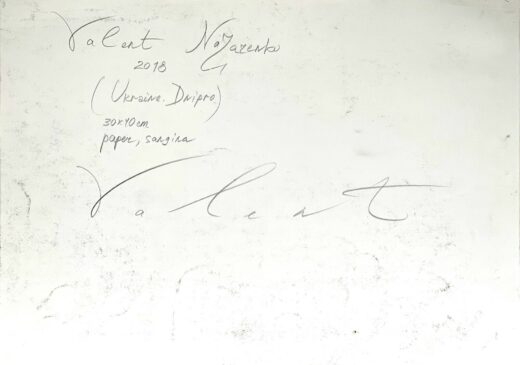 Valent Nozarenko
2018
(Ukraine. Dnipro)
30x40cm
paper, sangina
Valent